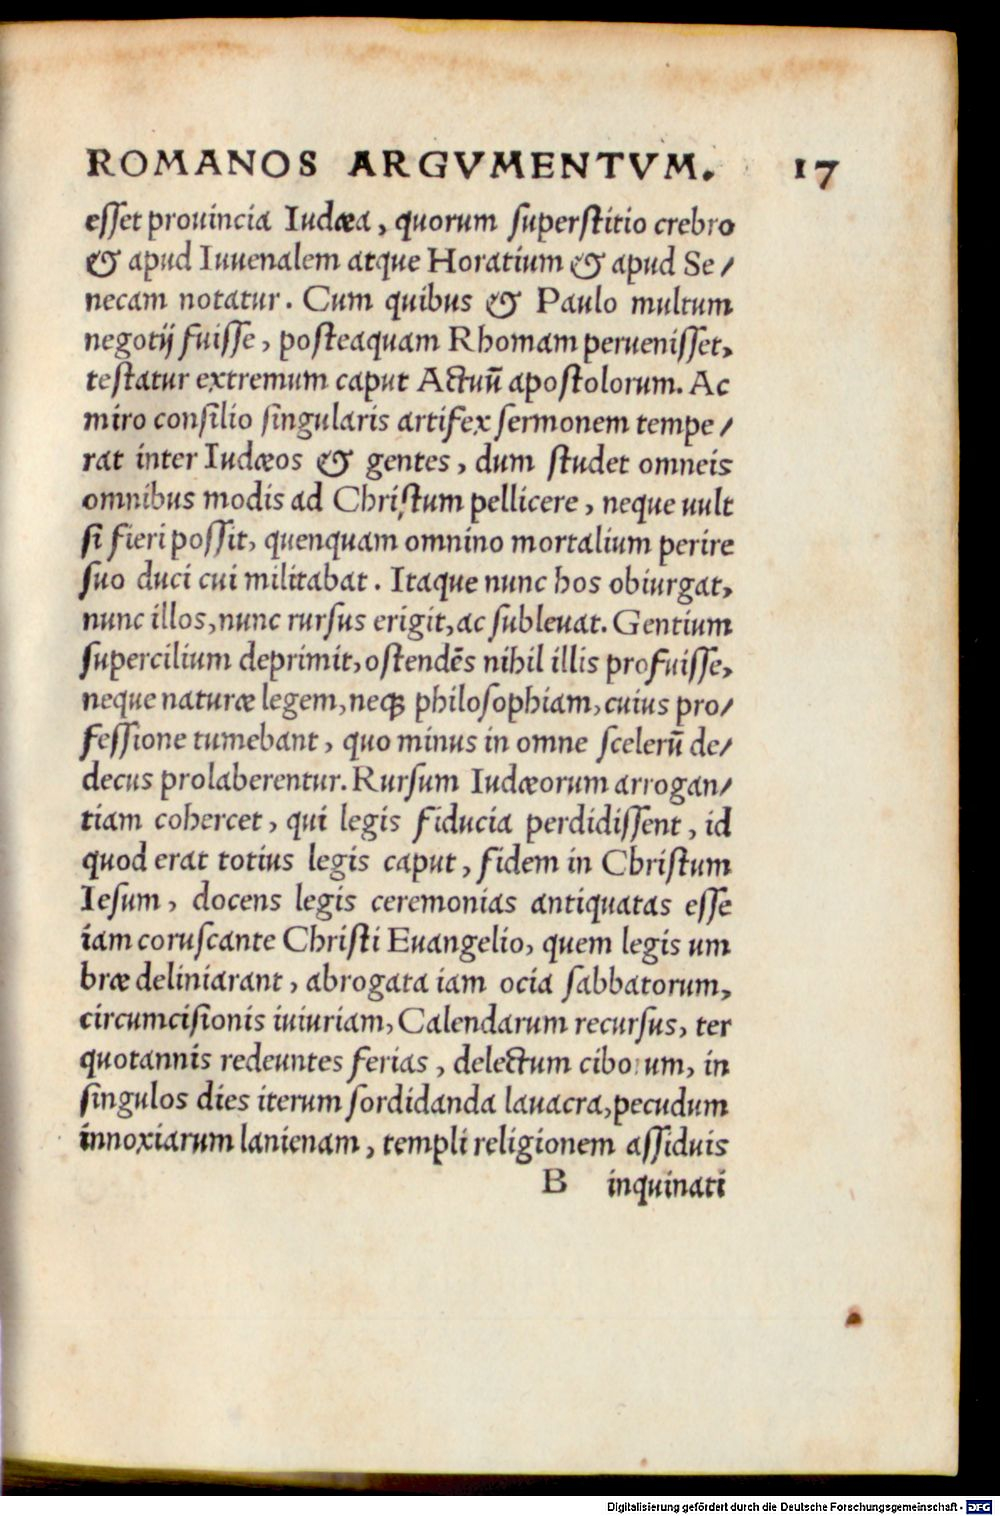 ROMANOS ARGVMENTVM. 17
esset prouincia Iudæa, quorum superstitio crebro
& apud Iuuenalem atque Horatium & apud Se/
necam notatur. Cum quibus & Paulo multum
negotij fuisse, posteaquam Rhomam peruenisset,
testatur extremum caput Actuū apostolorum. Ac
miro consilio singularis artifex sermonem tempe/
rat inter Iudæos & gentes, dum studet omneis
omnibus modis ad Christum pellicere, neque uult
si fieri possit, quenquam omnino mortalium perire
suo duci cui militabat. Itaque nunc hos obiurgat,
nunc illos, nunc rursus erigit, ac subleuat. Gentium
supercilium deprimit, ostendēs nihil illis profuisse,
neque naturæ legem, neqꝫ philosophiam, cuius pro/
fessione tumebant, quo minus in omne scelerū de/
decus prolaberentur. Rursum Iudæorum arrogan/
tiam cohercet, qui legis fiducia perdidissent, id
quod erat totius legis caput, fidem in Christum
Iesum, docens legis ceremonias antiquatas esse
iam coruscante Christi Euangelio, quem legis um
bræ deliniarant, abrogata iam ocia sabbatorum,
circumcisionis iuiuriam, Calendarum recursus, ter
quotannis redeuntes ferias, delectum ciborum, in
singulos dies iterum sordidanda lauacra, pecudum
innoxiarum lanienam, templi religionem assiduis
B inquinati
Digitalisierung gefördert durch die Deutsche Forschungsgemeinschaft - DFG